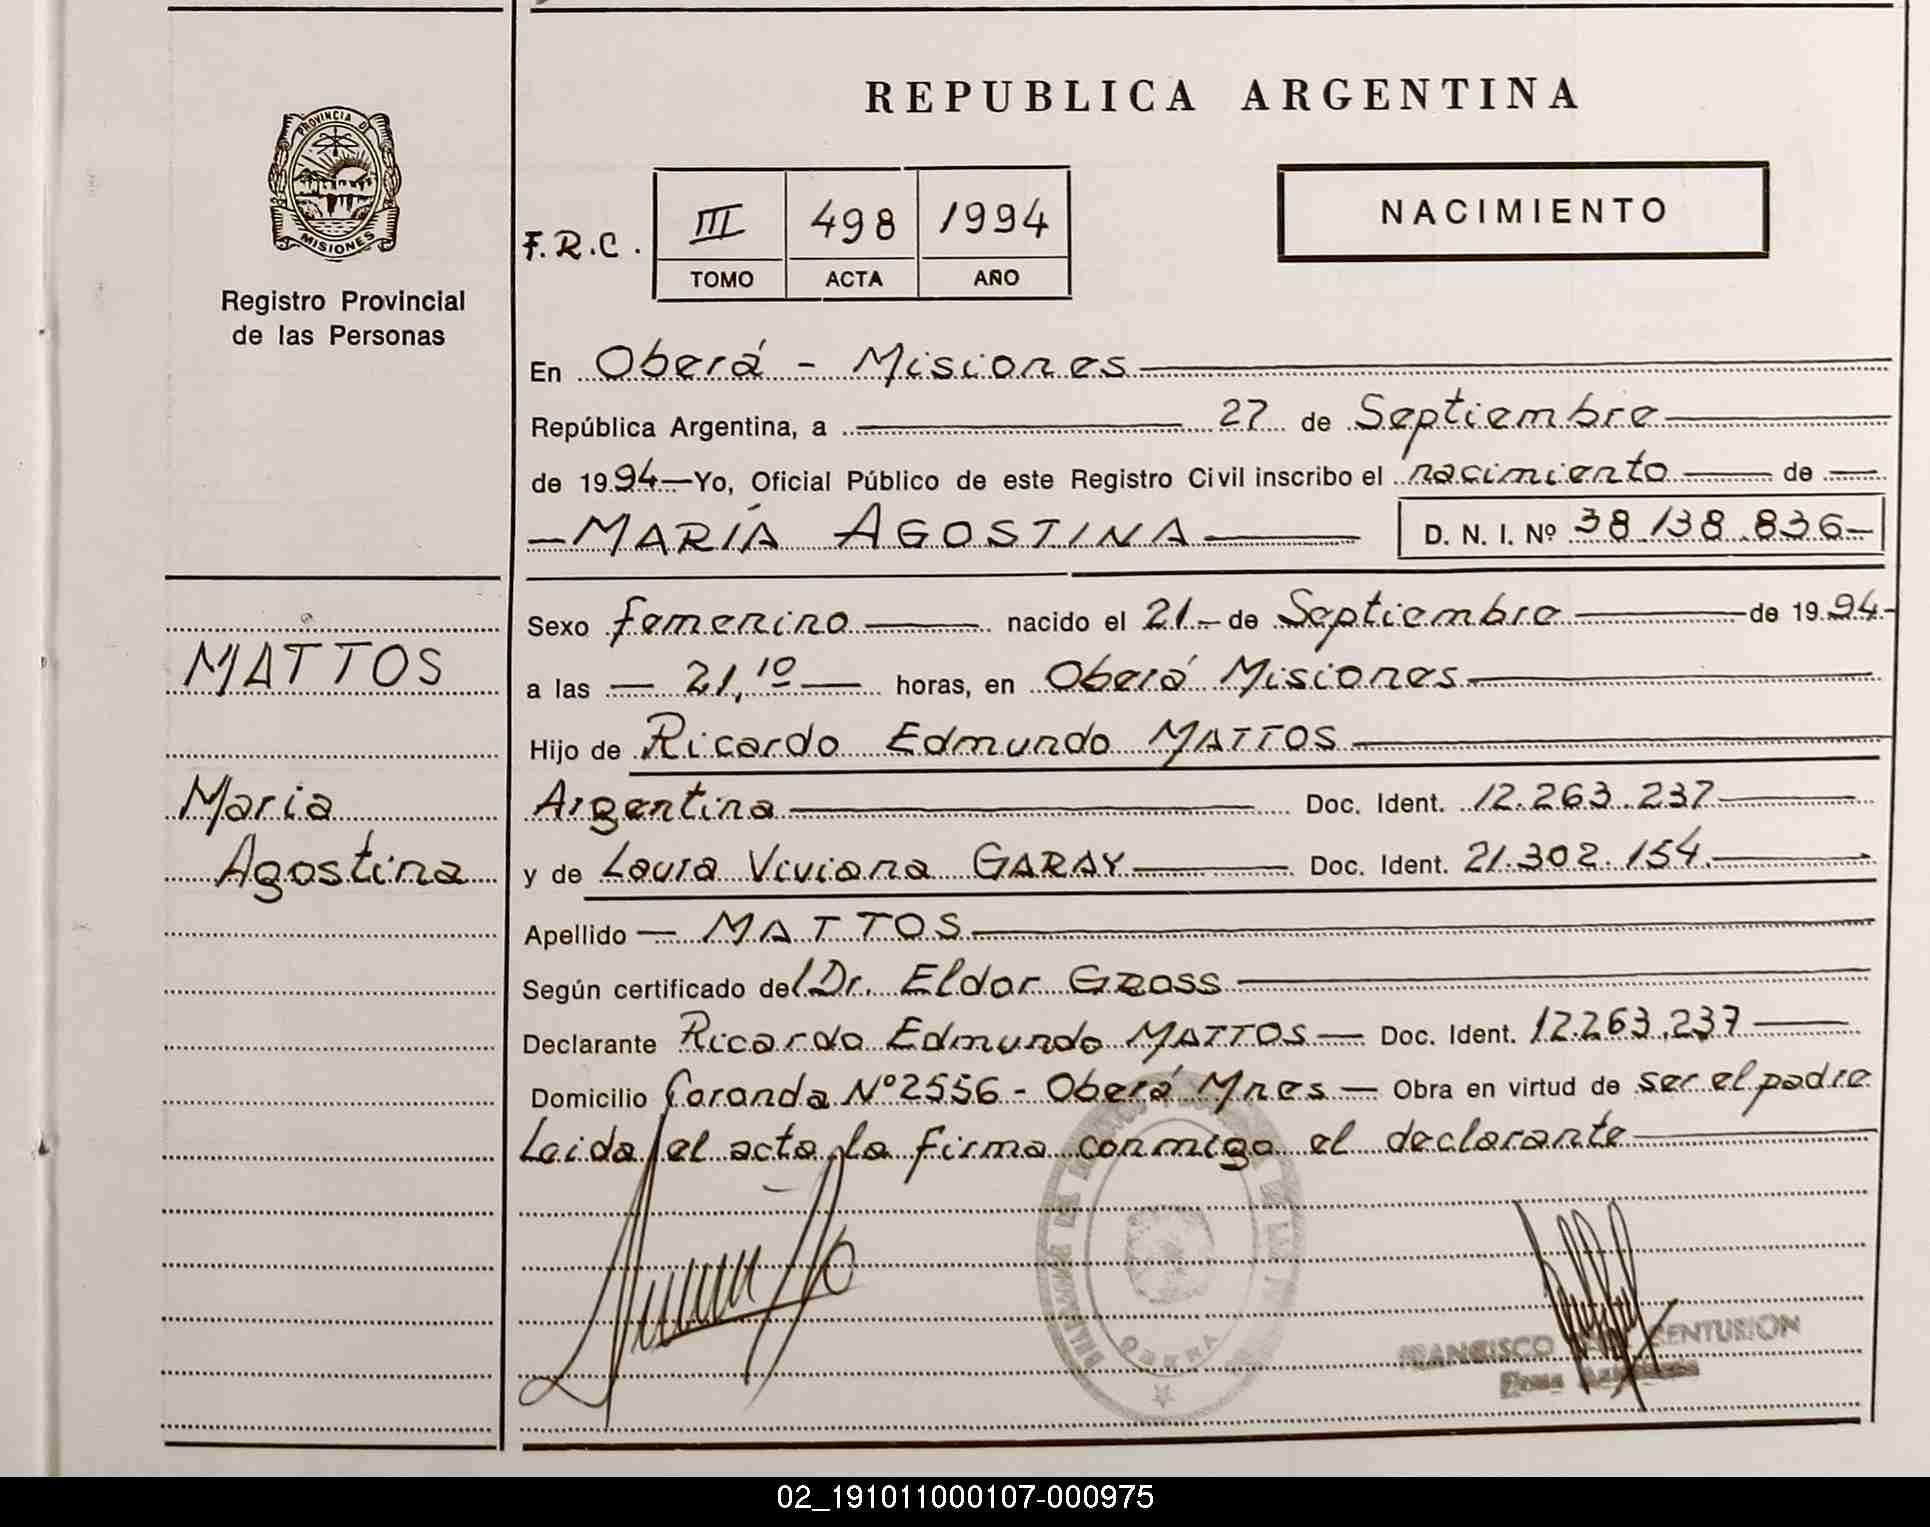 REPUBLICA ARGENTINA
PROVINCIA DE
MISIONES
Registro Provincial
de las Personas
NACIMIENTO
F.R.C. III 498 1994
TOMO ACTA AÑO
En Oberá - Misiones
República Argentina, a 27 de Septiembre
de 1994 Yo, Oficial Público de este Registro Civil inscribo el nacimiento de
MARÍA AGOSTINA D. N. I. Nº 38.138.836
MATTOS
Maria
Agostina
Sexo femenino nacido el 21 de Septiembre de 1994
a las 21,10 horas, en Oberá Misiones
Hijo de Ricardo Edmundo MATTOS
Argentina Doc. Ident. 12.263.237
y de Laura Viviana GARAY Doc. Ident. 21.302.154
Apellido MATTOS
Según certificado del Dr. Eldor Gross
Declarante Ricardo Edmundo MATTOS Doc. Ident. 12.263.237
Domicilio Caranda Nº 2556 - Oberá Mnes Obra en virtud de ser el padre
Leida el acta la firma conmigo el declarante
OBERA
FRANCISCO CENTURION
02_191011000107-000975